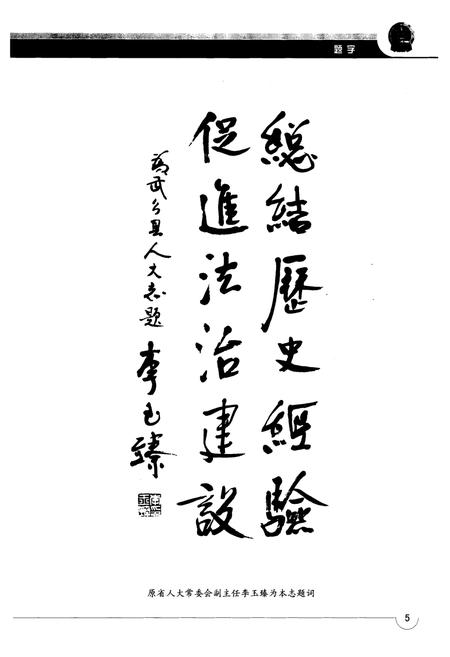 题字
總結歷史經驗
促進法治建設
為武乡县人大志題
李玉臻
原省人大常委会副主任李玉臻为本志题词
5